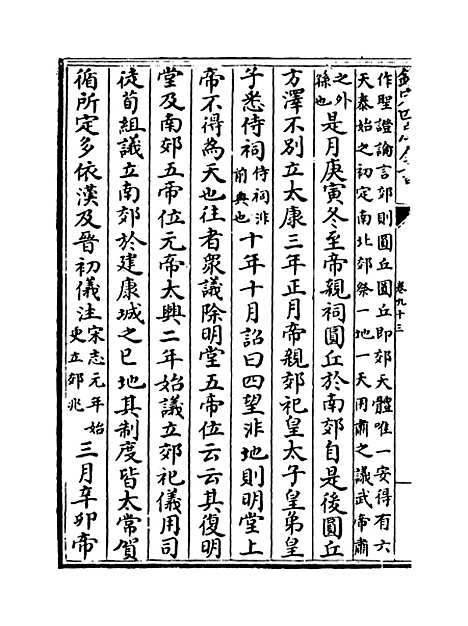 卷九十三
作聖證論言郊則圓丘圓丘即郊天體唯一安得有六
天泰始之初定南北郊祭一地一天用肅之議武帝肅
之外孫也是月庚寅冬至帝親祠圓丘於南郊自是後圓丘
方澤不别立太康三年正月帝親郊祀皇太子皇弟皇
子悉侍祠侍祠非前典也十年十月詔曰四望非地則明堂上
帝不得為天也往者衆議除明堂五帝位云云其復明
堂及南郊五帝位元帝太興二年始議立郊祀儀用司
徒荀組議立南郊於建康城之巳地其制度皆太常賀
循所定多依漢及晉初儀注宋志元年始更立郊兆三月辛卯帝